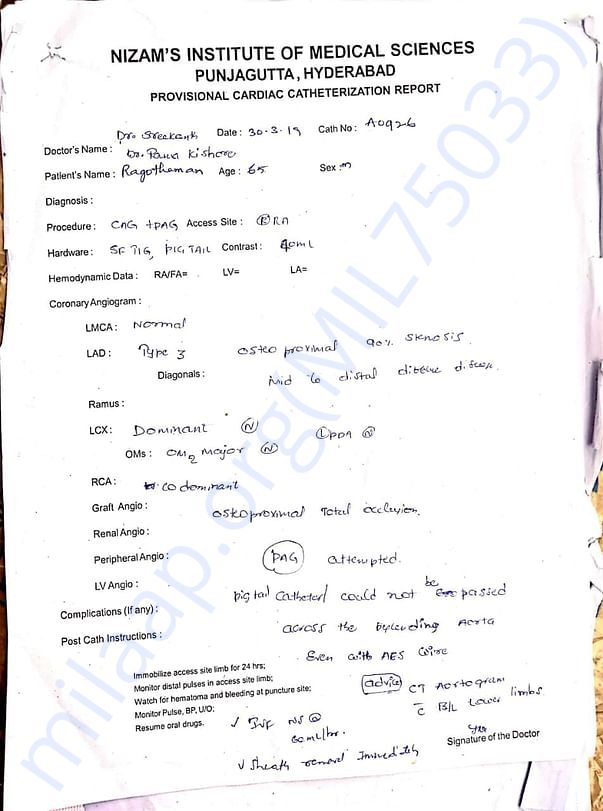 NIZAM'S INSTITUTE OF MEDICAL SCIENCES
PUNJAGUTTA, HYDERABAD
PROVISIONAL CARDIAC CATHETERIZATION REPORT
Dr. Sreekanth Date : 30-3-19 Cath No : A0926
Doctor's Name : Dr. Pavan Kishore
Patient's Name : Ragotheman Age : 65 Sex : M
Diagnosis :
Procedure : CAG + PAG Access Site : (R) RA
Hardware : 5F TIG, PIGTAIL Contrast : 40mL
Hemodynamic Data : RA/FA= LV= LA=
Coronary Angiogram :
LMCA : Normal
LAD : Type 3 osteo proximal 90% stenosis.
Diagonals : Mid to distal diffuse disease.
Ramus :
LCX : Dominant (N) (L) PDA (N)
OMs : OM2 Major (N)
RCA : co dominant
Graft Angio : osteoproximal Total occlusion.
Renal Angio :
Peripheral Angio : PAG attempted.
LV Angio : Pigtail Catheter could not be passed
Complications (If any) : across the Aorta
Post Cath Instructions : Even with AES wire
Immobilize access site limb for 24 hrs;
Monitor distal pulses in access site limb;
Watch for hematoma and bleeding at puncture site;
Monitor Pulse, BP, U/O;
Resume oral drugs.
advice CT Aortogram
c̄ B/L Lower limbs
√ IVF NS @
60ml/hr.
Signature of the Doctor
√ Sheath removal Immediately
milaap.org(MIL75033)